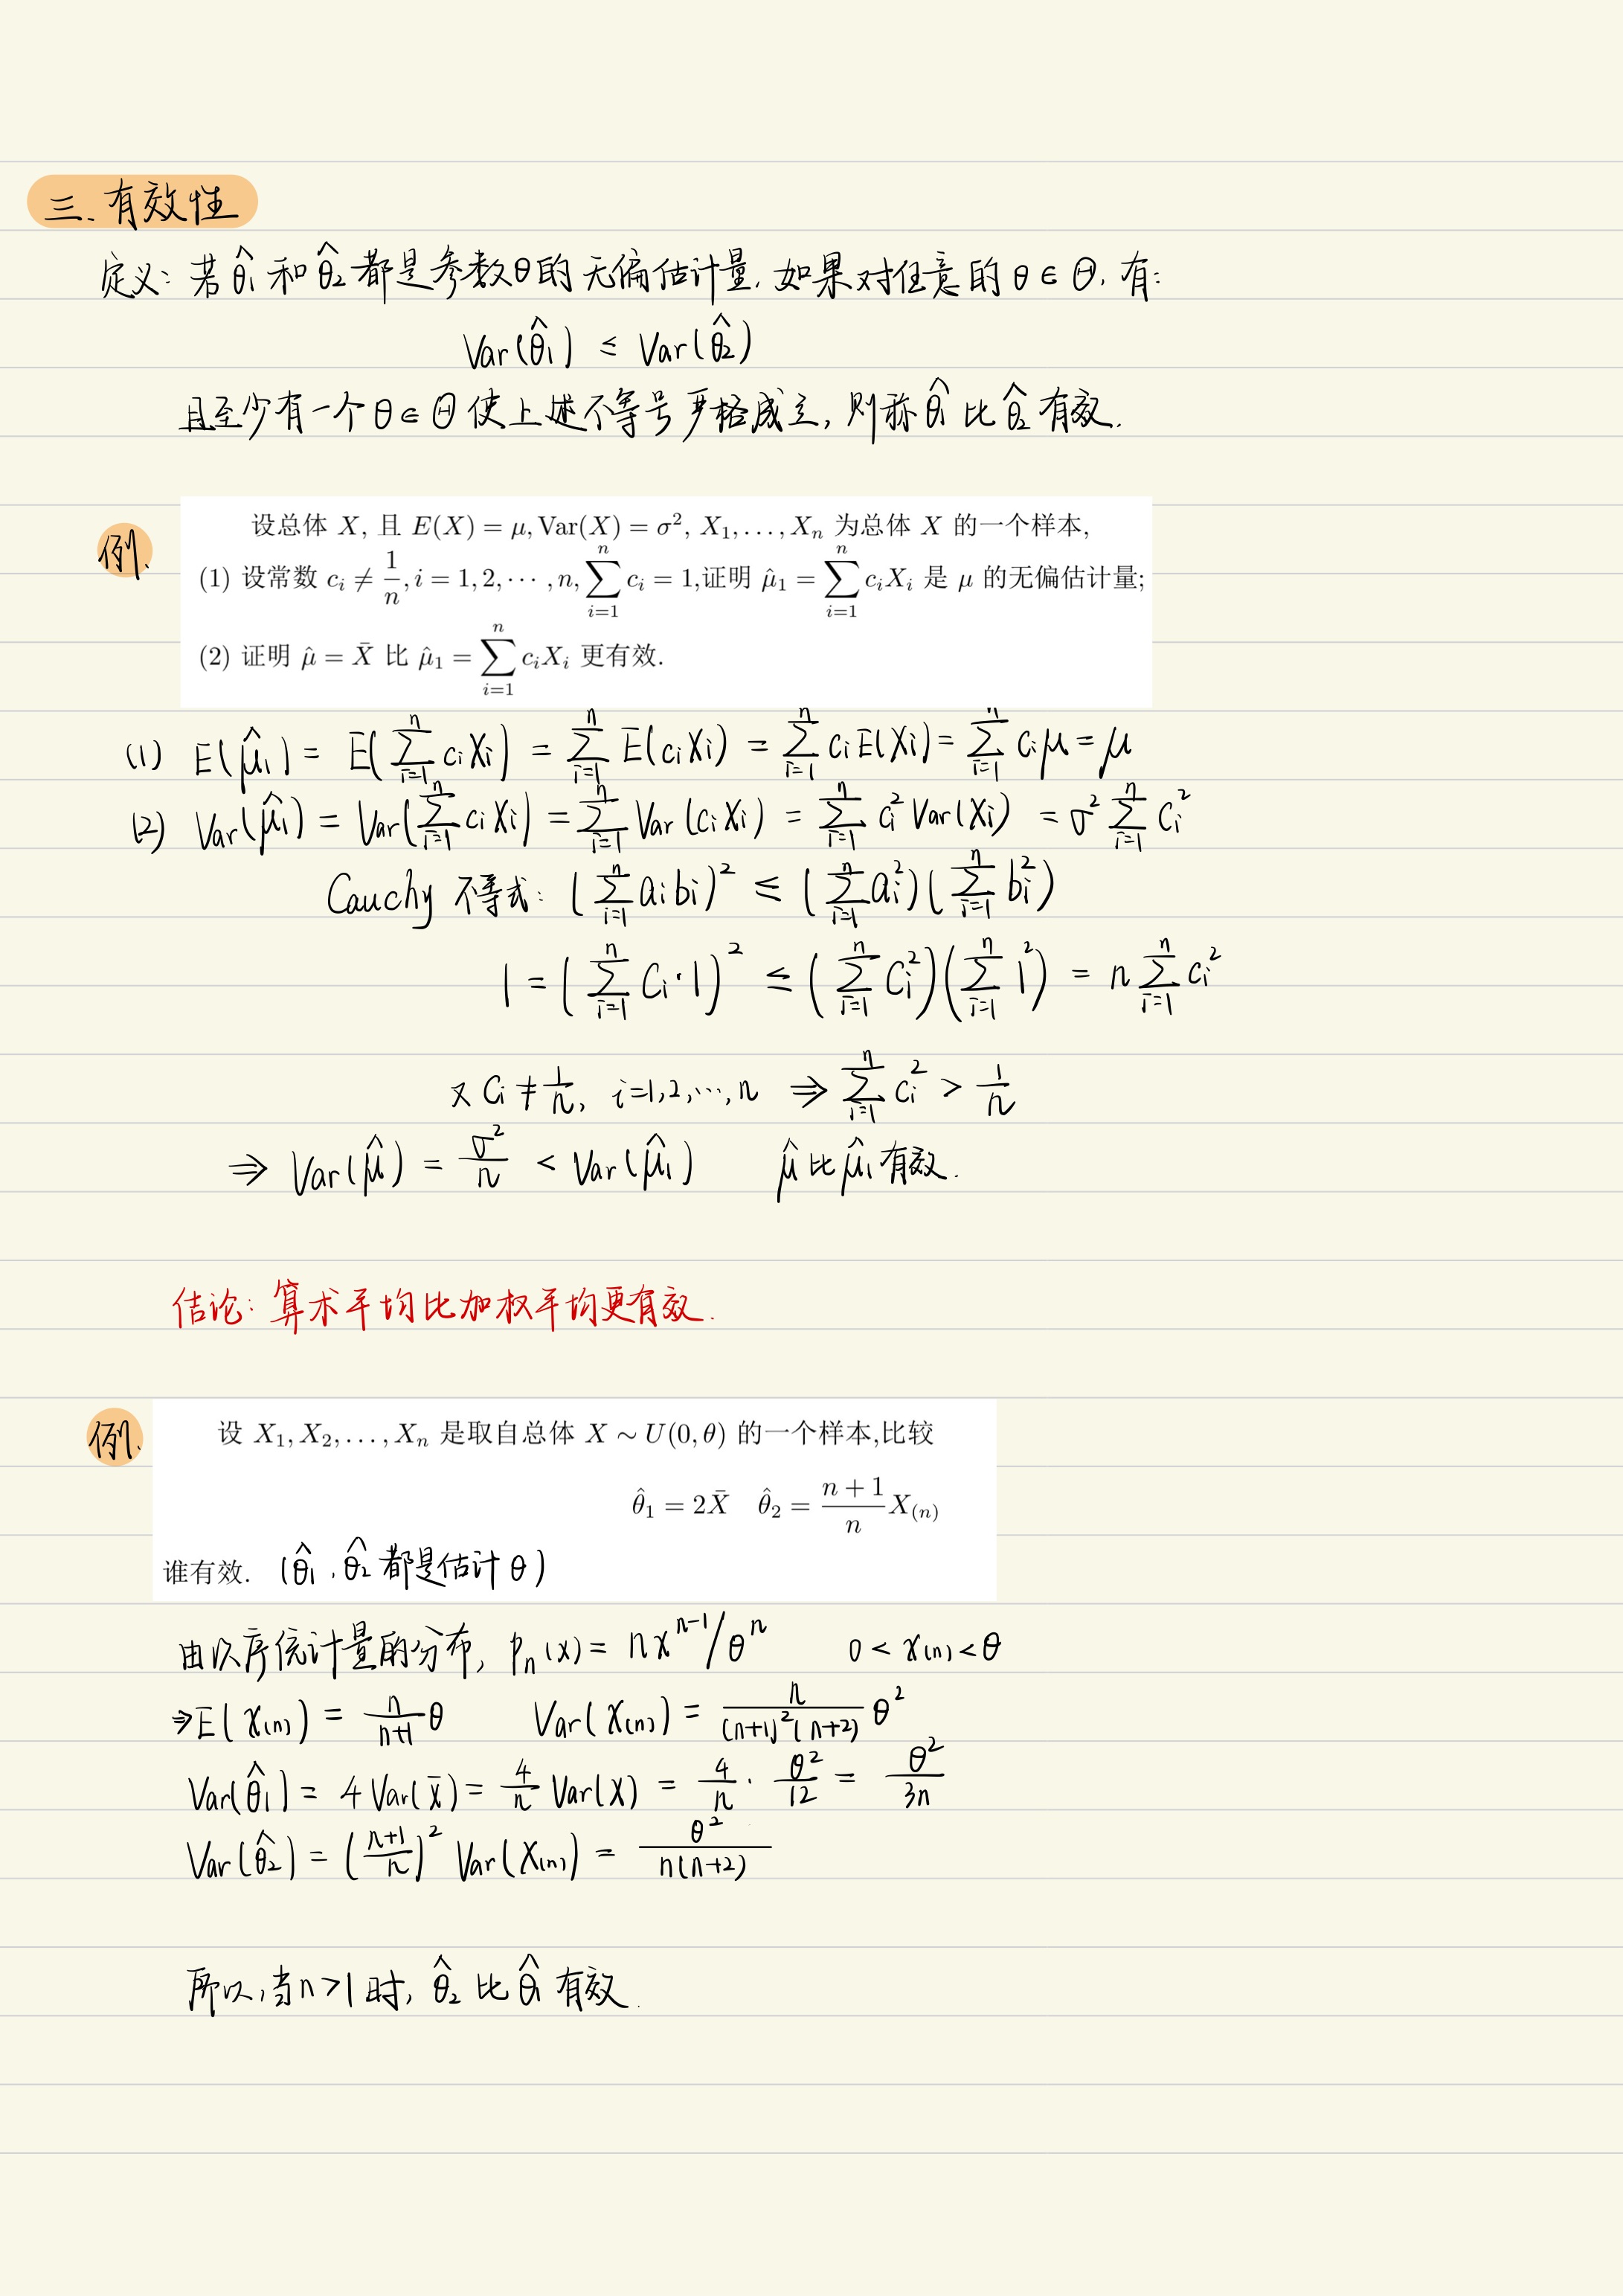 三.有效性
定义: 若 θ̂₁ 和 θ̂₂ 都是参数θ的无偏估计量, 如果对任意的 θ∈Θ, 有:
Var(θ̂₁) ≤ Var(θ̂₂)
且至少有一个 θ∈Θ 使上述不等号严格成立, 则称 θ̂₁ 比 θ̂₂ 有效.
例. 设总体 X, 且 E(X) = μ, Var(X) = σ², X₁, . . . , Xₙ 为总体 X 的一个样本,
(1) 设常数 cᵢ ≠ 1/n, i = 1, 2, ⋯ , n, ∑ᵢ₌₁ⁿ cᵢ = 1,证明 μ̂₁ = ∑ᵢ₌₁ⁿ cᵢXᵢ 是 μ 的无偏估计量;
(2) 证明 μ̂ = X̄ 比 μ̂₁ = ∑ᵢ₌₁ⁿ cᵢXᵢ 更有效.
(1) E(μ̂₁) = E(∑ᵢ₌₁ⁿ cᵢXᵢ) = ∑ᵢ₌₁ⁿ E(cᵢXᵢ) = ∑ᵢ₌₁ⁿ cᵢE(Xᵢ) = ∑ᵢ₌₁ⁿ cᵢμ = μ
(2) Var(μ̂₁) = Var(∑ᵢ₌₁ⁿ cᵢXᵢ) = ∑ᵢ₌₁ⁿ Var(cᵢXᵢ) = ∑ᵢ₌₁ⁿ cᵢ²Var(Xᵢ) = σ²∑ᵢ₌₁ⁿ cᵢ²
Cauchy 不等式: (∑ᵢ₌₁ⁿ aᵢbᵢ)² ≤ (∑ᵢ₌₁ⁿ aᵢ²)(∑ᵢ₌₁ⁿ bᵢ²)
1 = (∑ᵢ₌₁ⁿ Cᵢ·1)² ≤ (∑ᵢ₌₁ⁿ Cᵢ²)(∑ᵢ₌₁ⁿ 1²) = n∑ᵢ₌₁ⁿ cᵢ²
又 Cᵢ ≠ 1/n, i=1,2,⋯,n ⇒ ∑ᵢ₌₁ⁿ cᵢ² > 1/n
⇒ Var(μ̂) = σ²/n < Var(μ̂₁) μ̂ 比 μ̂₁ 有效.
结论: 算术平均比加权平均更有效.
例. 设 X₁, X₂, . . . , Xₙ 是取自总体 X ∼ U(0, θ) 的一个样本,比较
θ̂₁ = 2X̄ θ̂₂ = (n + 1)/n X₍ₙ₎
谁有效. (θ̂₁, θ̂₂ 都是估计 θ)
由次序统计量的分布, pₙ(x) = nxⁿ⁻¹/θⁿ 0 < x₍ₙ₎ < θ
⇒E(X₍ₙ₎) = n/(n+1) θ Var(X₍ₙ₎) = n/((n+1)²(n+2)) θ²
Var(θ̂₁) = 4Var(x̄) = 4/n Var(X) = 4/n · θ²/12 = θ²/3n
Var(θ̂₂) = ((n+1)/n)² Var(X₍ₙ₎) = θ²/(n(n+2))
所以,当n>1时, θ̂₂ 比 θ̂₁ 有效.